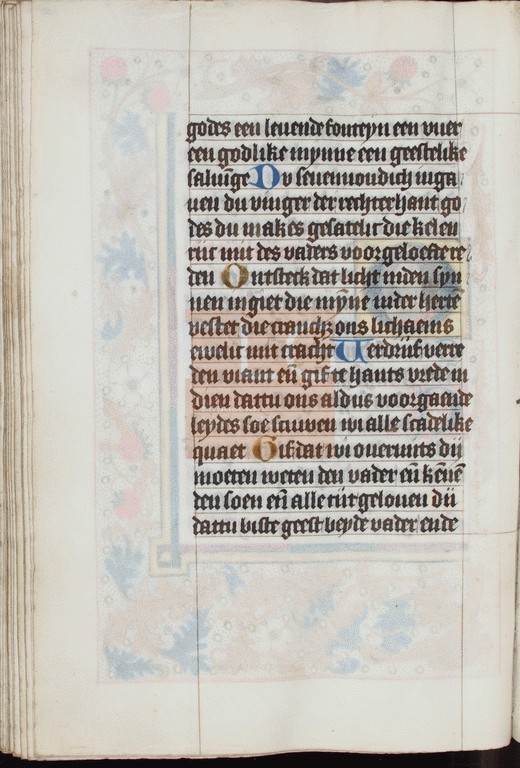 godes een leuende fonteyn een vuer
een godlike mynne een geestelike
saluīge Du seuenuoudich inga
uen du vinger der rechterhant go
des du makes gesatelic die kelen
riic mit des vaders voorgeloefte re
den Ontsteck dat licht inden syn
nen ingiet die mȳne inder hertē
vestet die cranchz ons lichaems
ewelic mit cracht Verdriif verre
den viant eñ gif te hants vrede in
dien dattu ons aldus voorgaende
leydes soe scuwen wi alle scadelike
quaet Gif dat wi ouermits dij
moeten weten den vader eñ kēnē
den soen eñ alle tijt gelouen dū
dattu biste geest beyde vader ende